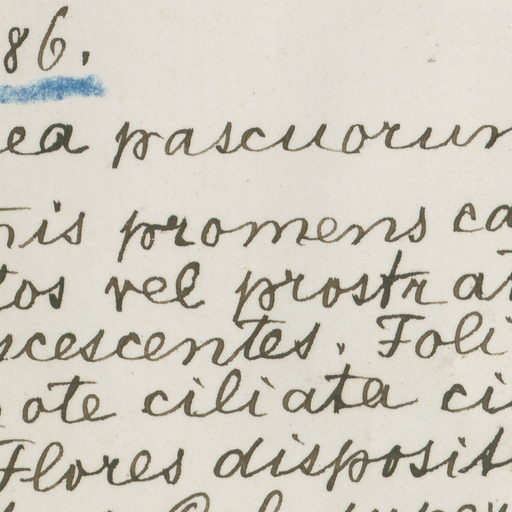 86.
ea pascuorum
nis promens ca
tos vel prostrat
scescentes. Foli
ote ciliata ci
Flores disposit